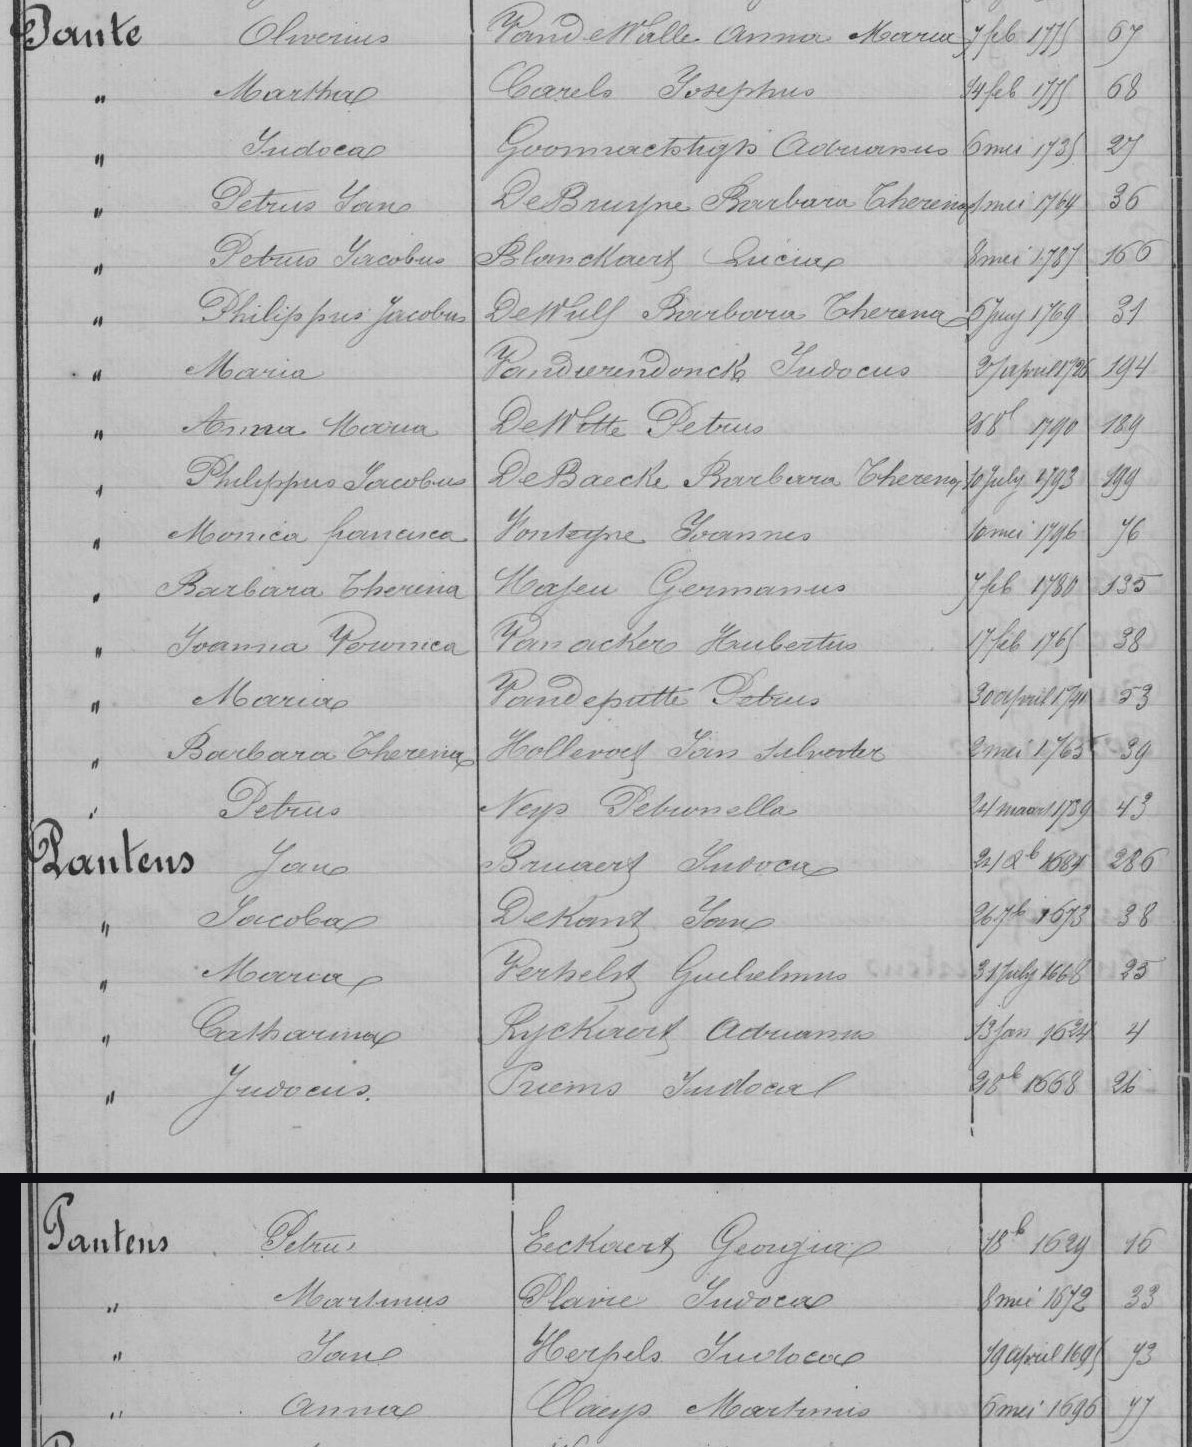 Pante Oliverius Vande Walle Anna Maria 7 feb 1775 67
" Martha Carels Josephus 14 feb 1775 68
" Judoca Goomachtigh Adrianus 6 mei 1735 27
" Petrus Jan De Bruyne Barbara Theresia 1 mei 1764 36
" Petrus Jacobus Blanckaert Lucia 8 mei 1787 166
" Philippus Jacobus De Wulf Barbara Theresia 6 Juny 1769 31
" Maria Vandierendonck Judocus april 194
" Anna Maria De Witte Petrus 1790 189
" Philippus Jacobus De Baecke Barbara Theresia 10 July 1793 199
" Monica francisca Fonteyne Joannes 10 mei 1796 76
" Barbara Theresia Majeu Germanus 7 feb 1780 135
" Joanna Veronica Van acker Hubertus 17 feb 1765 38
" Maria Vandeputte Petrus 30 april 53
" Barbara Theresia Hollevoet Jan Silvester 2 mei 1765 39
" Petrus Neys Petronella 24 maart 1739 43
Pantens Jan Bruaert Judoca 1684 286
" Jacoba De Kant Jan 26 7b 1673 38
" Maria Verhelst Guilielmus 31 July 1668 25
" Catharina Ryckaert Adrianus 13 Jan 1624 4
" Judocus Priems Judoca 1668 26
Pantens Petrus Eeckaert Georgia 1 8b 1629 16
" Martinus Plavie Judoca 8 mei 1672 33
" Jan Herpels Judoca 19 april 1695 73
" Anna Claeys Martinus 6 mei 1696 77